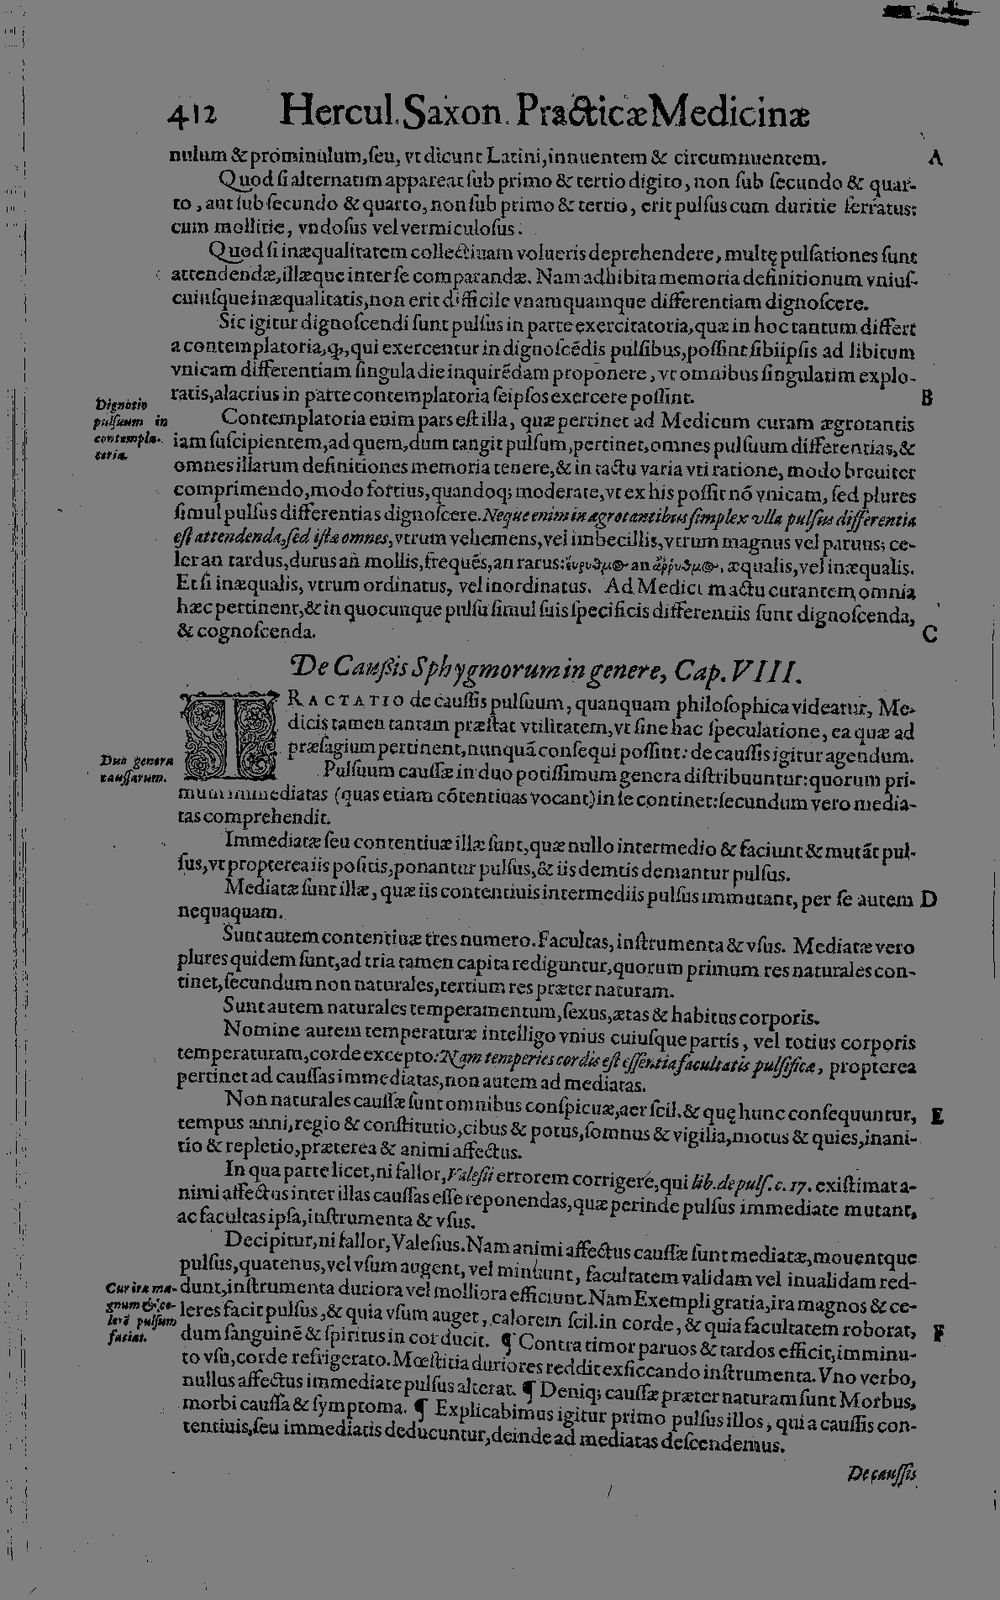 412 Hercul. Saxon. Practicæ Medicinæ
nulum & prominulum, seu, vt dicunt Latini, innuentem & circumnuentem. A
Quod si alternatim appareat sub primo & tertio digito, non sub secundo & quar-
to, aut sub secundo & quarto, non sub primo & tertio, erit pulsus cum duritie serratus:
cum mollitie, vndosus vel vermiculosus.
Quod si inæqualitatem collectiuam volueris deprehendere, multę pulsationes sunt
attendendæ, illæque inter se comparandæ. Nam adhibita memoria definitionum vnius-
cuiusque inæqualitatis, non erit difficile vnamquamque differentiam dignoscere.
Sic igitur dignoscendi sunt pulsus in parte exercitatoria, quæ in hoc tantum differt
a contemplatoria, ꝙ, qui exercentur in dignoscēdis pulsibus, possint sibiipsis ad libitum
vnicam differentiam singula die inquirēdam proponere, vt omnibus singulatim explo-
ratis, alacrius in parte contemplatoria seipsos exercere possint. B
Dignotio
pulsuum in
contempla-
toria.
Contemplatoria enim pars est illa, quæ pertinet ad Medicum curam ægrotantis
iam suscipientem, ad quem, dum tangit pulsum, pertinet, omnes pulsuum differentias, &
omnes illarum definitiones memoria tenere, & in tactu varia vti ratione, modo breuiter
comprimendo, modo fortius, quandoq; moderate, vt ex his possit nō vnicam, sed plures
simul pulsus differentias dignoscere. Neque enim in ægrotantibus simplex vlla pulsus differentia
est attendenda, sed istæ omnes, vtrum vehemens, vel imbecillis, vtrum magnus vel paruus; ce-
ler an tardus, durus an mollis, frequēs, an rarus: εὔρυθμος an ἄῤῥυθμος, æqualis, vel inæqualis.
Et si inæqualis, vtrum ordinatus, vel inordinatus. Ad Medici in actu curantem omnia
hæc pertinent, & in quocunque pulsu simul suis specificis differentiis sunt dignoscenda,
& cognoscenda. C
De Caussis Sphygmorum in genere, Cap. VIII.
TRACTATIO de caussis pulsuum, quanquam philosophica videatur, Me-
dicis tamen tantam præstat vtilitatem, vt sine hac speculatione, ea quæ ad
præsagium pertinent, nunquā consequi possint: de caussis igitur agendum.
Duo genera
caussarum.
Pulsuum caussæ in duo potissimum genera distribuuntur: quorum pri-
mum immediatas (quas etiam cōtentiuas vocant) in se continet: secundum vero media-
tas comprehendit.
Immediatæ seu contentiuæ illæ sunt, quæ nullo intermedio & faciunt & mutāt pul-
sus, vt propterea iis positis, ponantur pulsus, & iis demtis demantur pulsus.
Mediatæ sunt illæ, quæ iis contentiuis intermediis pulsus immutant, per se autem D
nequaquam.
Sunt autem contentiuæ tres numero. Facultas, instrumenta & vsus. Mediatæ vero
plures quidem sunt, ad tria tamen capita rediguntur, quorum primum res naturales con-
tinet, secundum non naturales, tertium res præter naturam.
Sunt autem naturales temperamentum, sexus, ætas & habitus corporis.
Nomine autem temperaturæ intelligo vnius cuiusque partis, vel totius corporis
temperaturam, corde excepto: Nam temperies cordis est essentia facultatis pulsificæ, propterea
pertinet ad caussas immediatas, non autem ad mediatas.
Non naturales caussæ sunt omnibus conspicuæ, aer scil. & quę hunc consequuntur, E
tempus anni, regio & constitutio, cibus & potus, somnus & vigilia, motus & quies, inani-
tio & repletio, præterea & animi affectus.
In qua parte licet, ni fallor, Valesii errorem corrigere, qui lib. de puls. c. 17. existimat a-
nimi affectus inter illas caussas esse reponendas, quæ perinde pulsus immediate mutant,
ac facultas ipsa, instrumenta & vsus.
Decipitur, ni fallor, Valesius. Nam animi affectus caussæ sunt mediatæ, mouentque
pulsus, quatenus, vel vsum augent, vel minuunt, facultatem validam vel inualidam red-
Cur ira ma-
gnum & ce-
lerē pulsum
faciat.
dunt, instrumenta duriora vel molliora efficiunt. Nam Exempli gratia, ira magnos & ce-
leres facit pulsus, & quia vsum auget, calorem scil. in corde, & quia facultatem roborat, F
dum sanguinē & spiritus in cor ducit. ¶ Contra timor paruos & tardos efficit, imminu-
to vsu, corde refrigerato. Mœstitia duriores reddit exsiccando instrumenta. Vno verbo,
nullus affectus immediate pulsus alterat. ¶ Deniq; caussæ præter naturam sunt Morbus,
morbi caussa & symptoma. ¶ Explicabimus igitur primo pulsus illos, qui a caussis con-
tentiuis, seu immediatis deducuntur, deinde ad mediatas descendemus.
De caussis